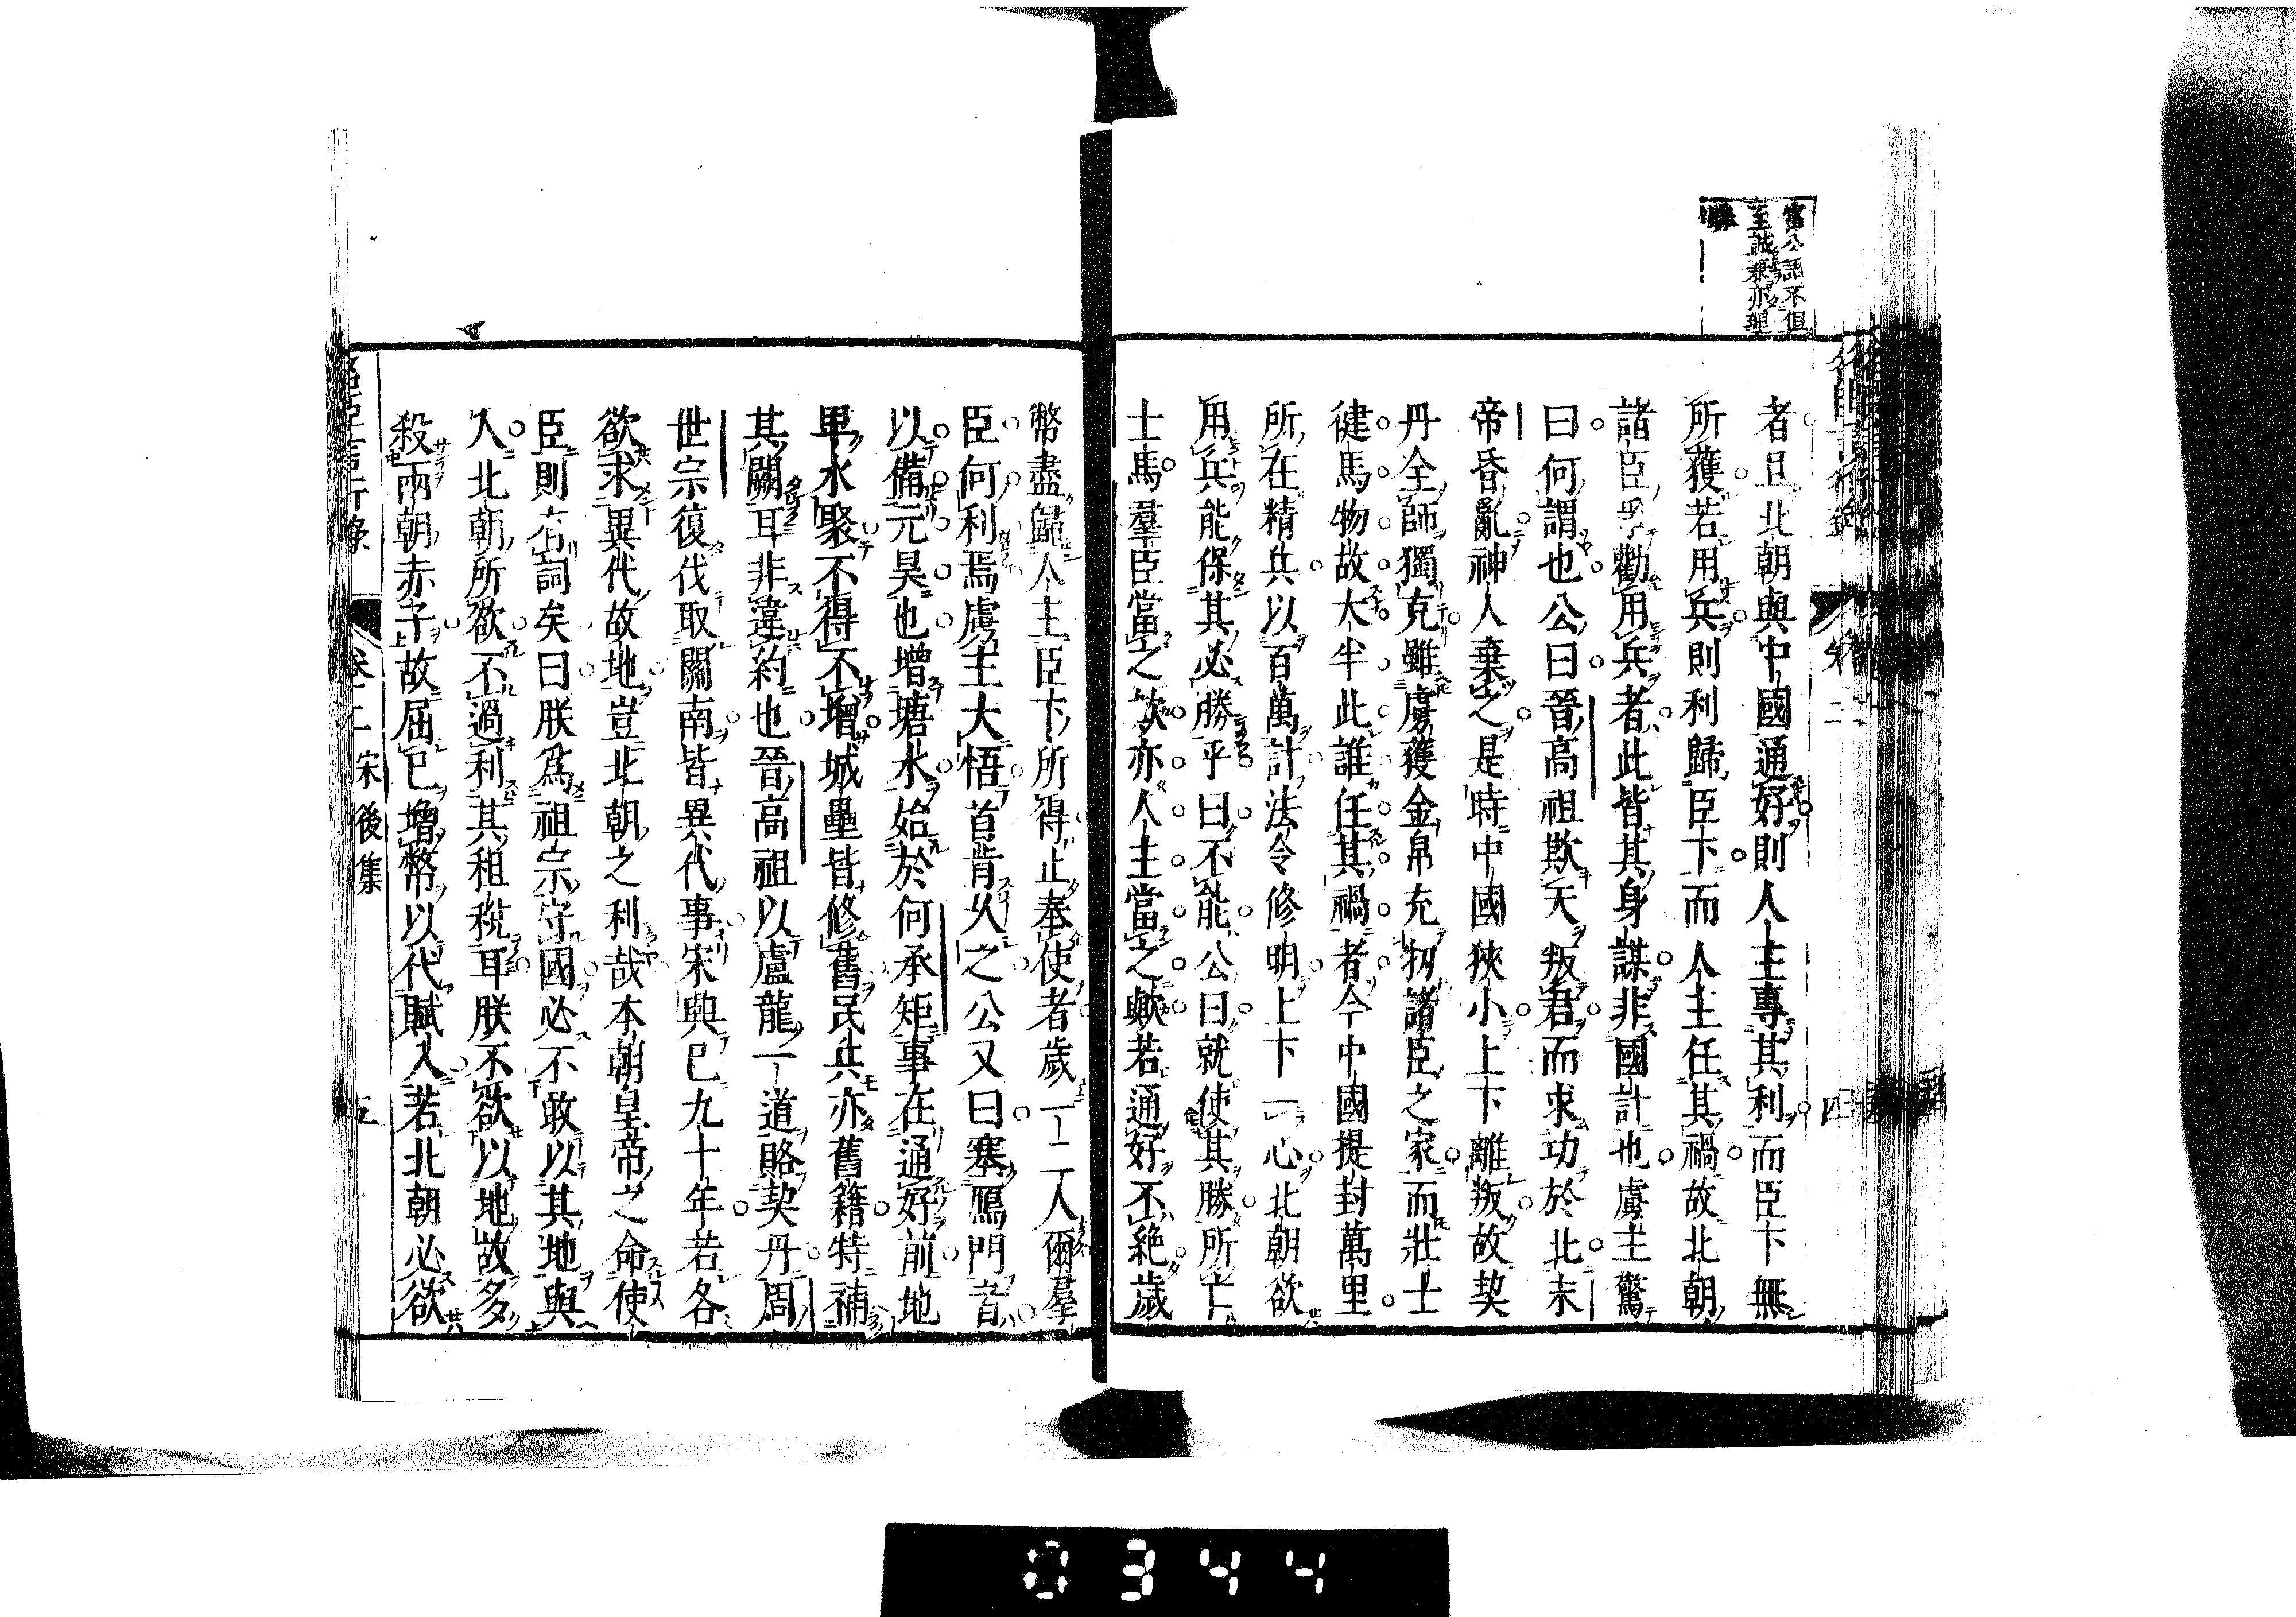 富公語不但
至誠兼亦理
勝
者且北朝與中國通好則人主專其利而臣下無
所獲若用兵則利歸臣下而人主任其禍故北朝
諸臣爭勸用兵者此皆其身謀非國計也虜主驚
曰何謂也公曰晉高祖欺天叛君而求功於北末
帝昏亂神人棄之是時中國狹小上下離叛故契
丹全師獨克雖虜獲金帛充牣諸臣之家而壯士
健馬物故太半此誰任其禍者今中國提封萬里
所在精兵以百萬計法令修明上下一心北朝欲
用兵能保其必勝乎曰不能公曰就使其勝所亡
士馬羣臣當之歟亦人主當之歟若通好不絕歲
幣盡歸人主臣下所得止奉使者歲一二人爾羣
臣何利焉虜主大悟首肯久之公又曰塞鴈門者
以備元昊也增塘水始於何承矩事在通好前地
卑水聚不得不增城壘皆修舊民兵亦舊籍特補
其闕耳非違約也晉高祖以盧龍一道賂契丹周
世宗復伐取關南皆異代事宋興已九十年若各
欲求異代故地豈北朝之利哉本朝皇帝之命使
臣則有詞矣曰朕爲祖宗守國必不敢以其地與
人北朝所欲不過利其租稅耳朕不欲以地故多
殺兩朝赤子故屈已增幣以代賦入若北朝必欲
卷二 宋後集 五